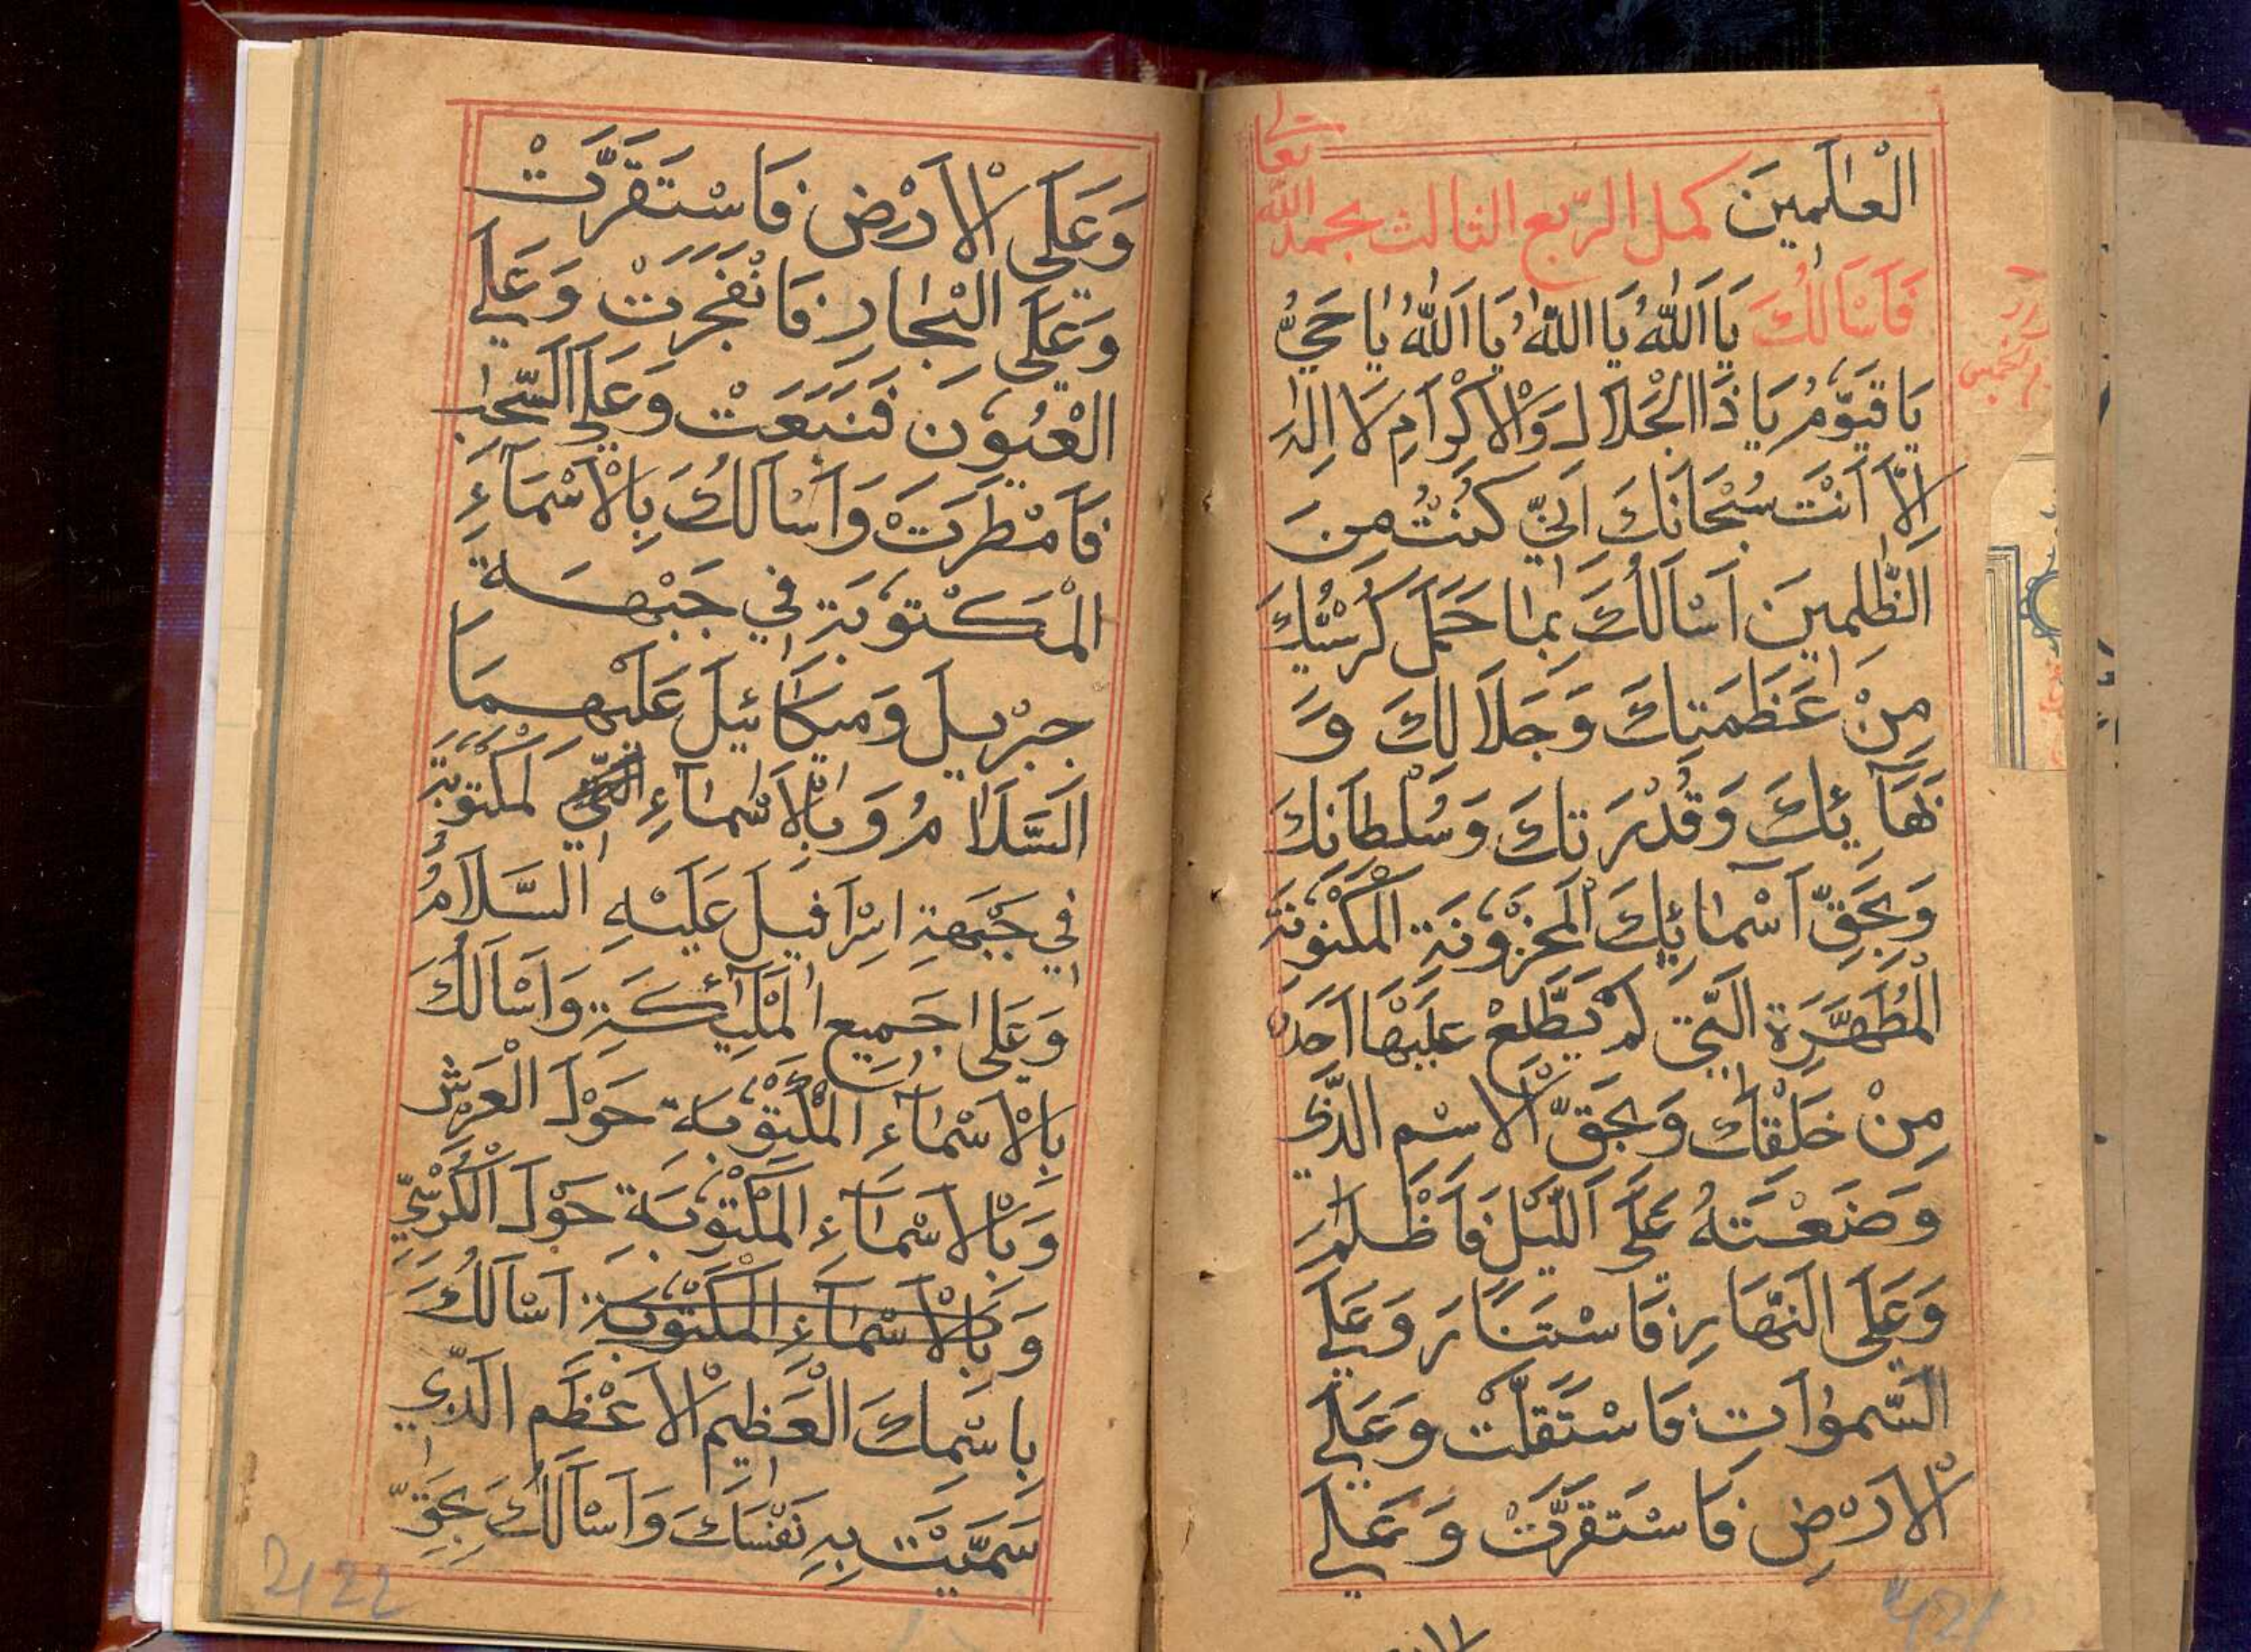 الْعٰالَمِينَ كمل الرّبع الثالث بحمد الله
تعالى
فَاَسْاَلُكَ يَا اَللّٰهُ يَا اللّٰهُ يَا اَللّٰهُ يٰا حَيُّ
يَا قَيُّومُ يَا ذَا الْجَلَالِ وَالْاِكْرَامِ لَا اِلٰهَ
اِلَّا اَنْتَ سُبْحَانَكَ اِنِّي كُنْتُ مِنَ
الظّٰلِمِينَ اَسْاَلُكَ بِمٰا حَمَلَ كُرْسِيُّكَ
مِنْ عَظَمَتِكَ وَجَلَالِكَ وَ
بَهَآئِكَ وَقُدْرَتِكَ وَسُلْطَانِكَ
وَبِحَقِّ اَسْمٰائِكَ الْمَخْزُونَةِ الْمَكْنُونَةِ
الْمُطَهَّرَةِ الَّتِي لَمْ يَطَّلِعْ عَلَيْهَا اَحَدٌ
مِنْ خَلْقِكَ وَبِحَقِّ الْاِسْمِ الَّذِي
وَضَعْتَهُ عَلَى اللَّيْلِ فَاَظْلَمَ
وَعَلَى النَّهَارِ فَاسْتَنَارَ وَعَلَي
السَّمٰوَاتِ فَاسْتَقَلَّتْ وَعَلَي
الْاَرْضِ فَاسْتَقَرَّتْ وَعَلَي
وَعَلَى الْاَرْضِ فَاسْتَقَرَّتْ
وَعَلَى الْبِحٰارِ فَانْفَجَرَتْ وَعَلَي
الْعُيُونِ فَنَبَعَتْ وَعَلَي السَّحٰابِ
فَاَمْطَرَتْ وَاَسْاَلُكَ بِالْاَسْمَآءِ
الْمَكْتُوبَةِ فِي جَبْهَةِ
جِبْرِيلَ وَمِيكَائِيلَ عَلَيْهِمَا
السَّلَامُ وَبِالْاَسْمٰاءِ الْمَكْتُوبَةِ
فِي جَبْهَةِ اِسْرَافِيلَ عَلَيْهِ السَّلَامُ
وَعَلَى جَمِيعِ الْمَلٰٓئِكَةِ وَاَسْاَلُكَ
بِالْاَسْمٰاءِ الْمَكْتُوبَةِ حَوْلَ الْعَرْشِ
وَبِالْاَسْمَآءِ الْمَكْتُوبَةِ حَوْلَ الْكُرْسِيِّ
وَبِالْاَسْمَآءِ الْمَكْتُوبَةِ اَسْاَلُكَ
بِاسْمِكَ الْعَظِيمِ الْاَعْظَمِ الَّذِي
سَمَّيْتَ بِهِ نَفْسَكَ وَاَسْاَلُكَ بِحَقِّ